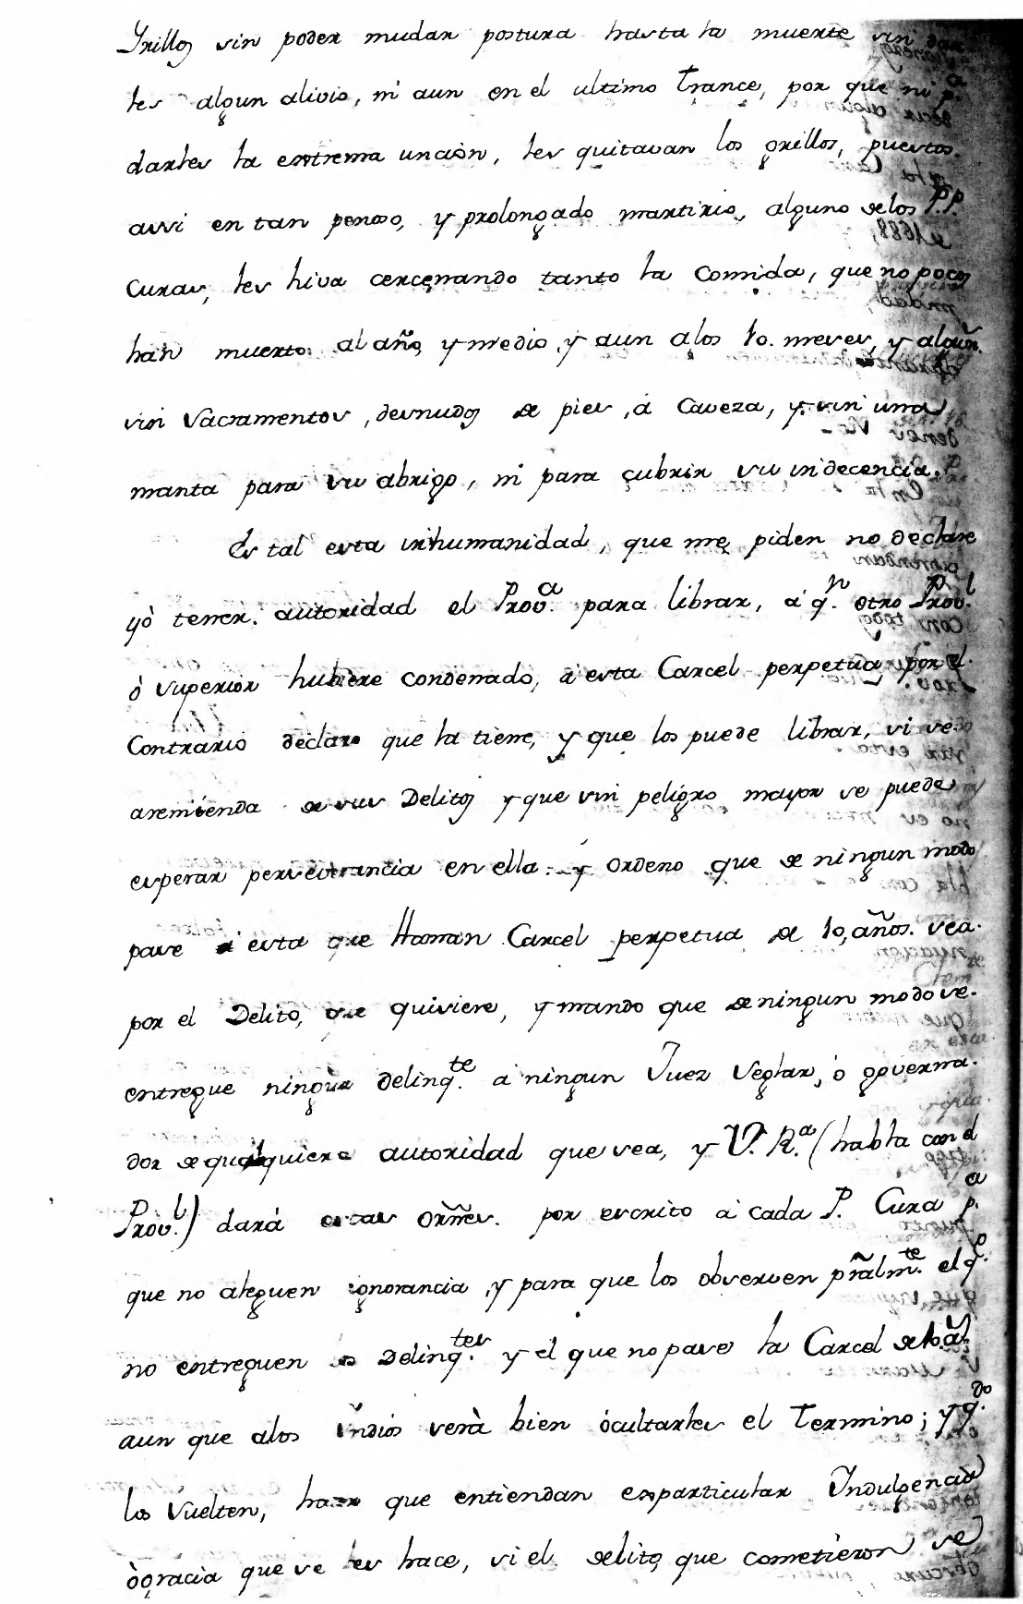 Grillos sin poder mudar postura hasta la muerte sin dar
les algun alivio, ni aun en el ultimo trance, por que ni p.ª
darles la extrema uncion, les quitavan los grillos, puestos.
assi en tan penoso, y prolongado martirio, alguno de los P.P.
Curas, les hiva cercenando tanto la comida, que no pocos
han muerto al año, y medio, y aun a los 10. meses, y algun.ˢ
sin Sacramentos, desnudos de pies, á Caveza, y sin una
manta para su abrigo, ni para cubrir su indecencia.
Es tal esta inhumanidad, que me piden no declare
yò tener autoridad el Prov.ª para librar, á q.ⁿ otro Prov.ˡ
ò Superior hubiere condenado, á esta Carcel perpetua, por el
Contrario declaro que la tiene, y que los puede librar, si se
aremienda de sus Delitos y que sin peligro mayor se puede
esperar perseverancia en ella: y ordeno que de ningun modo
pase á esta que llaman Carcel perpetua de 10, años. sea
por el Delito, que quisiere, y mando que de ningun modo se
entregue ningun delinq.ᵗᵉ á ningun Juez Seglar, ó governa
dor de qualquiera autoridad que sea, y V. R.ª (habla con el
Prov.ˡ) dará estas orñes. por escrito á cada P. Cura p.ª
que no aleguen ignorancia, y para que los observen pñalm.ᵗᵉ el q.º
no entreguen los Delinq.ᵗᵉˢ y el que no pase la Carcel de 10. añ.ˢ
aun que a los Yndios serà bien ócultarles el Termino; y q.ᵈᵒ
los Suelten, hazer que entiendan es particular Yndulgencia
ò gracia que se les hace, si el delito, que cometieron se